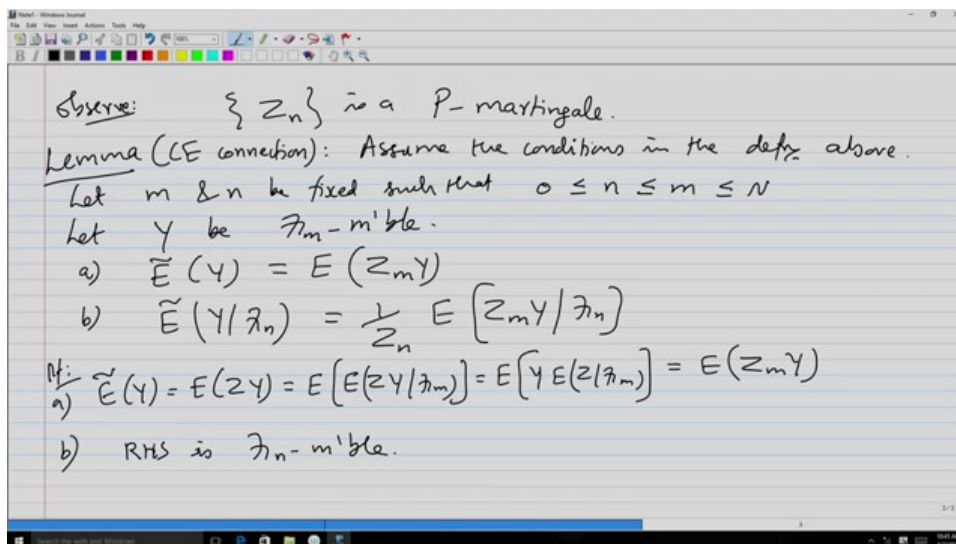 Note1 - Windows Journal
File Edit View Insert Actions Tools Help
observe: { Z_n } is a P-martingale.
Lemma (CE connection): Assume the conditions in the defn above.
Let m & n be fixed such that 0 ≤ n ≤ m ≤ N
Let Y be ℱ_m - m'ble.
a) Ẽ(Y) = E(Z_m Y)
b) Ẽ(Y/ℱ_n) = 1/Z_n E[Z_m Y/ℱ_n]
Pf:
a) Ẽ(Y) = E(ZY) = E[E(ZY/ℱ_m)] = E[Y E(Z/ℱ_m)] = E(Z_m Y)
b) RHS is ℱ_n - m'ble.
3/3
Search the web and Windows